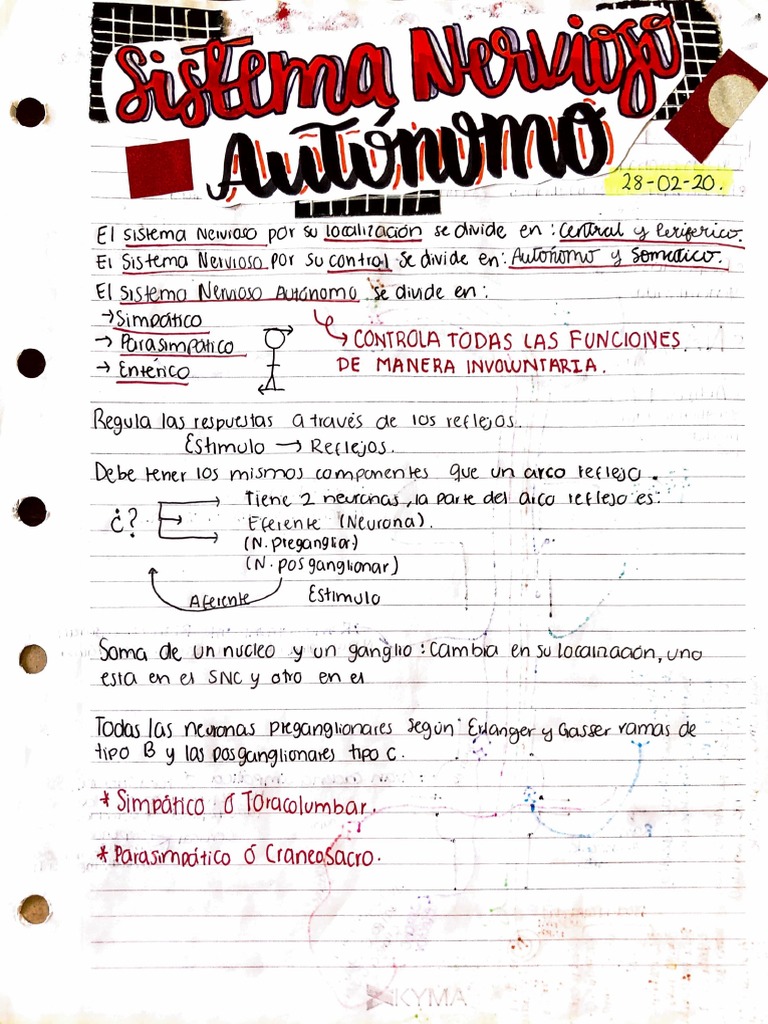 Sistema Nervioso
Autónomo
28-02-20.
El Sistema Nervioso por su localización se divide en: Central y Periferico.
El Sistema Nervioso por su control se divide en: Autónomo y Somatico.
El Sistema Nervioso Autónomo se divide en:
→ Simpático
→ Parasimpático
→ Entérico
→ CONTROLA TODAS LAS FUNCIONES
DE MANERA INVOLUNTARIA.
Regula las respuestas a través de los reflejos.
Estimulo → Reflejos.
Debe tener los mismos componentes que un arco reflejo.
¿?
Tiene 2 neuronas, la parte del arco reflejo es:
Eferente (Neurona).
(N. pregangliar)
(N. posganglionar)
Aferente
Estimulo
Soma de un nucleo y un ganglio: Cambia en su localización, uno
esta en el SNC y otro en el
Todas las neuronas preganglionares según Erlanger y Gasser ramas de
tipo B y las posganglionares tipo C.
* Simpático ó Toracolumbar.
* Parasimpático ó CraneoSacro.
KYMA